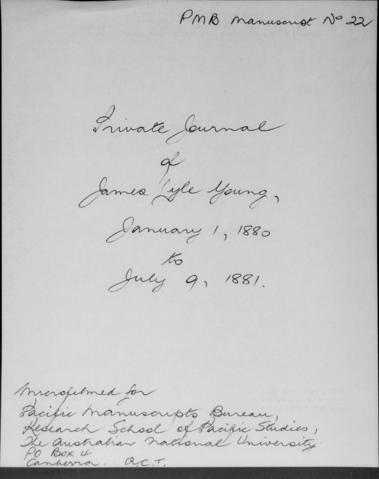 PMB Manuscript No 22
Private Journal
of
James Lyle Young,
January 1, 1880
to
July 9, 1881.
Microfilmed for
Pacific Manuscripts Bureau,
Research School of Pacific Studies,
The Australian National University
PO Box 4
Canberra. A.C.T.